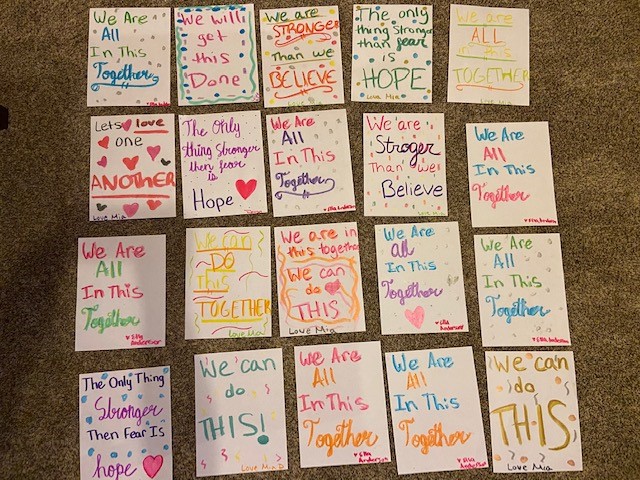 We Are
All
In This
Together
We will
get
this
Done
We are
STRONGER
Than we
BELIEVE
The only
thing Stronger
than fear
is
HOPE
Love Mia
We are
ALL
in this
TOGETHER
Lets love
one
ANOTHER
Love Mia
The Only
thing Stronger
then fear
is
Hope
We Are
All
In This
Together
Ella Anderson
We are
Stroger
Than wer
Believe
We Are
All
In This
Together
Ella Anderson
We Are
All
In This
Together
Ella
Anderson
We can
DO
THIS
TOGETHER
Love Mia
We are in
this together
We can
do
THIS
Love Mia
We Are
all
In This
Together
Ella
Anderson
We Are
All
In This
Together
Ella Anderson
The Only Thing
Stronger
Then Fear Is
hope
We can
do
THIS!
Love Mia
We Are
All
In This
Together
Ella
Anderson
We Are
All
In This
Together
Ella
Anderson
We can
do
THIS
Love Mia